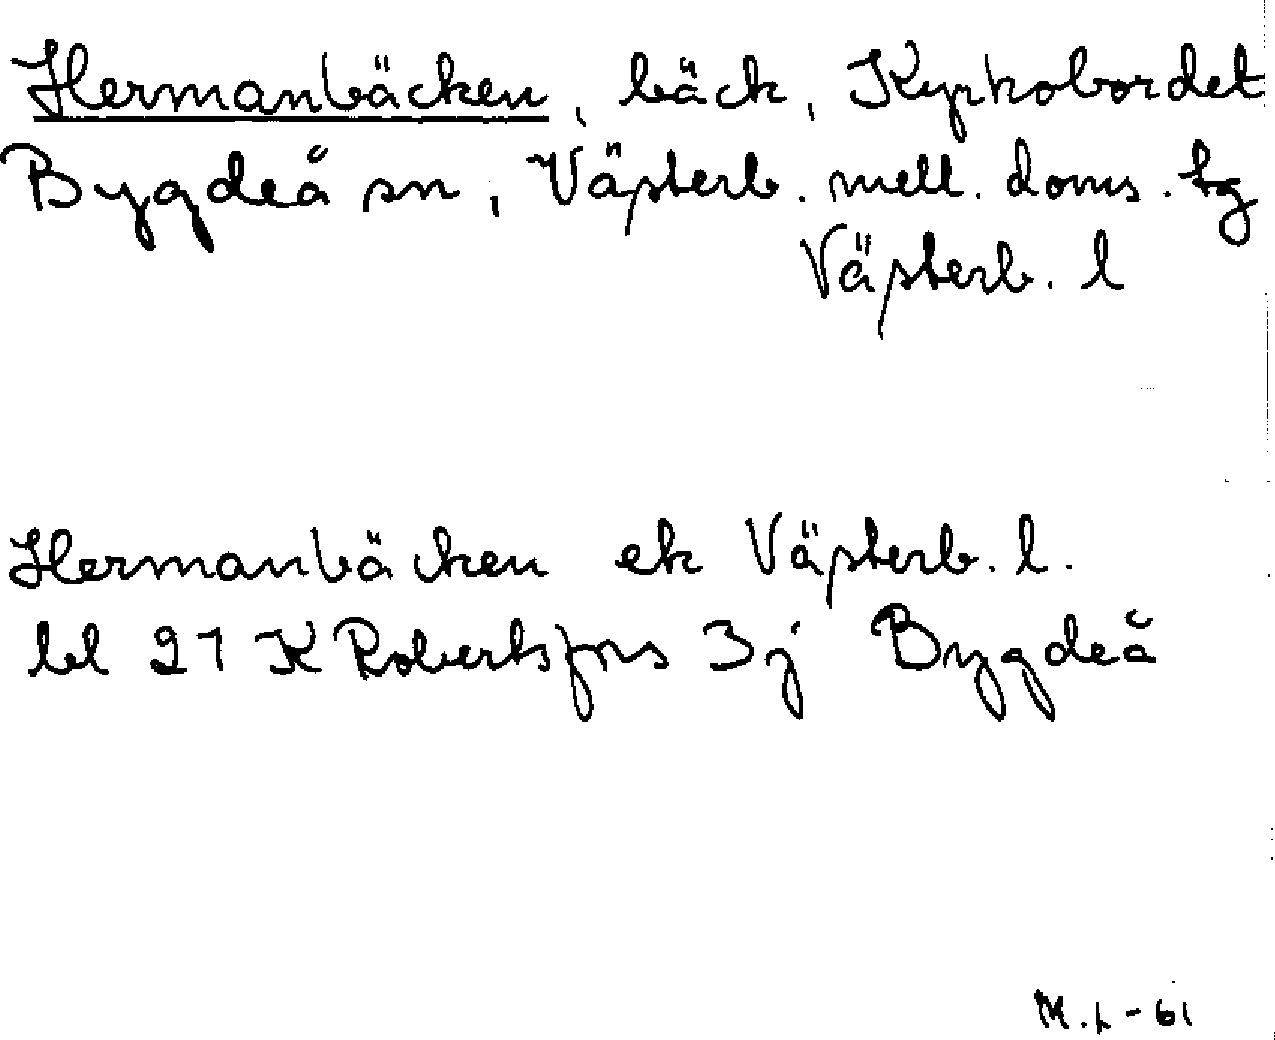 Hermanbäcken, bäck, Kyrkobordet
Bygdeå sn, Västerb. mell. doms. tg
Västerb. l
Hermanbäcken ek Västerb. l.
bl 21 K Robertsfors 3j Bygdeå
M.L-61